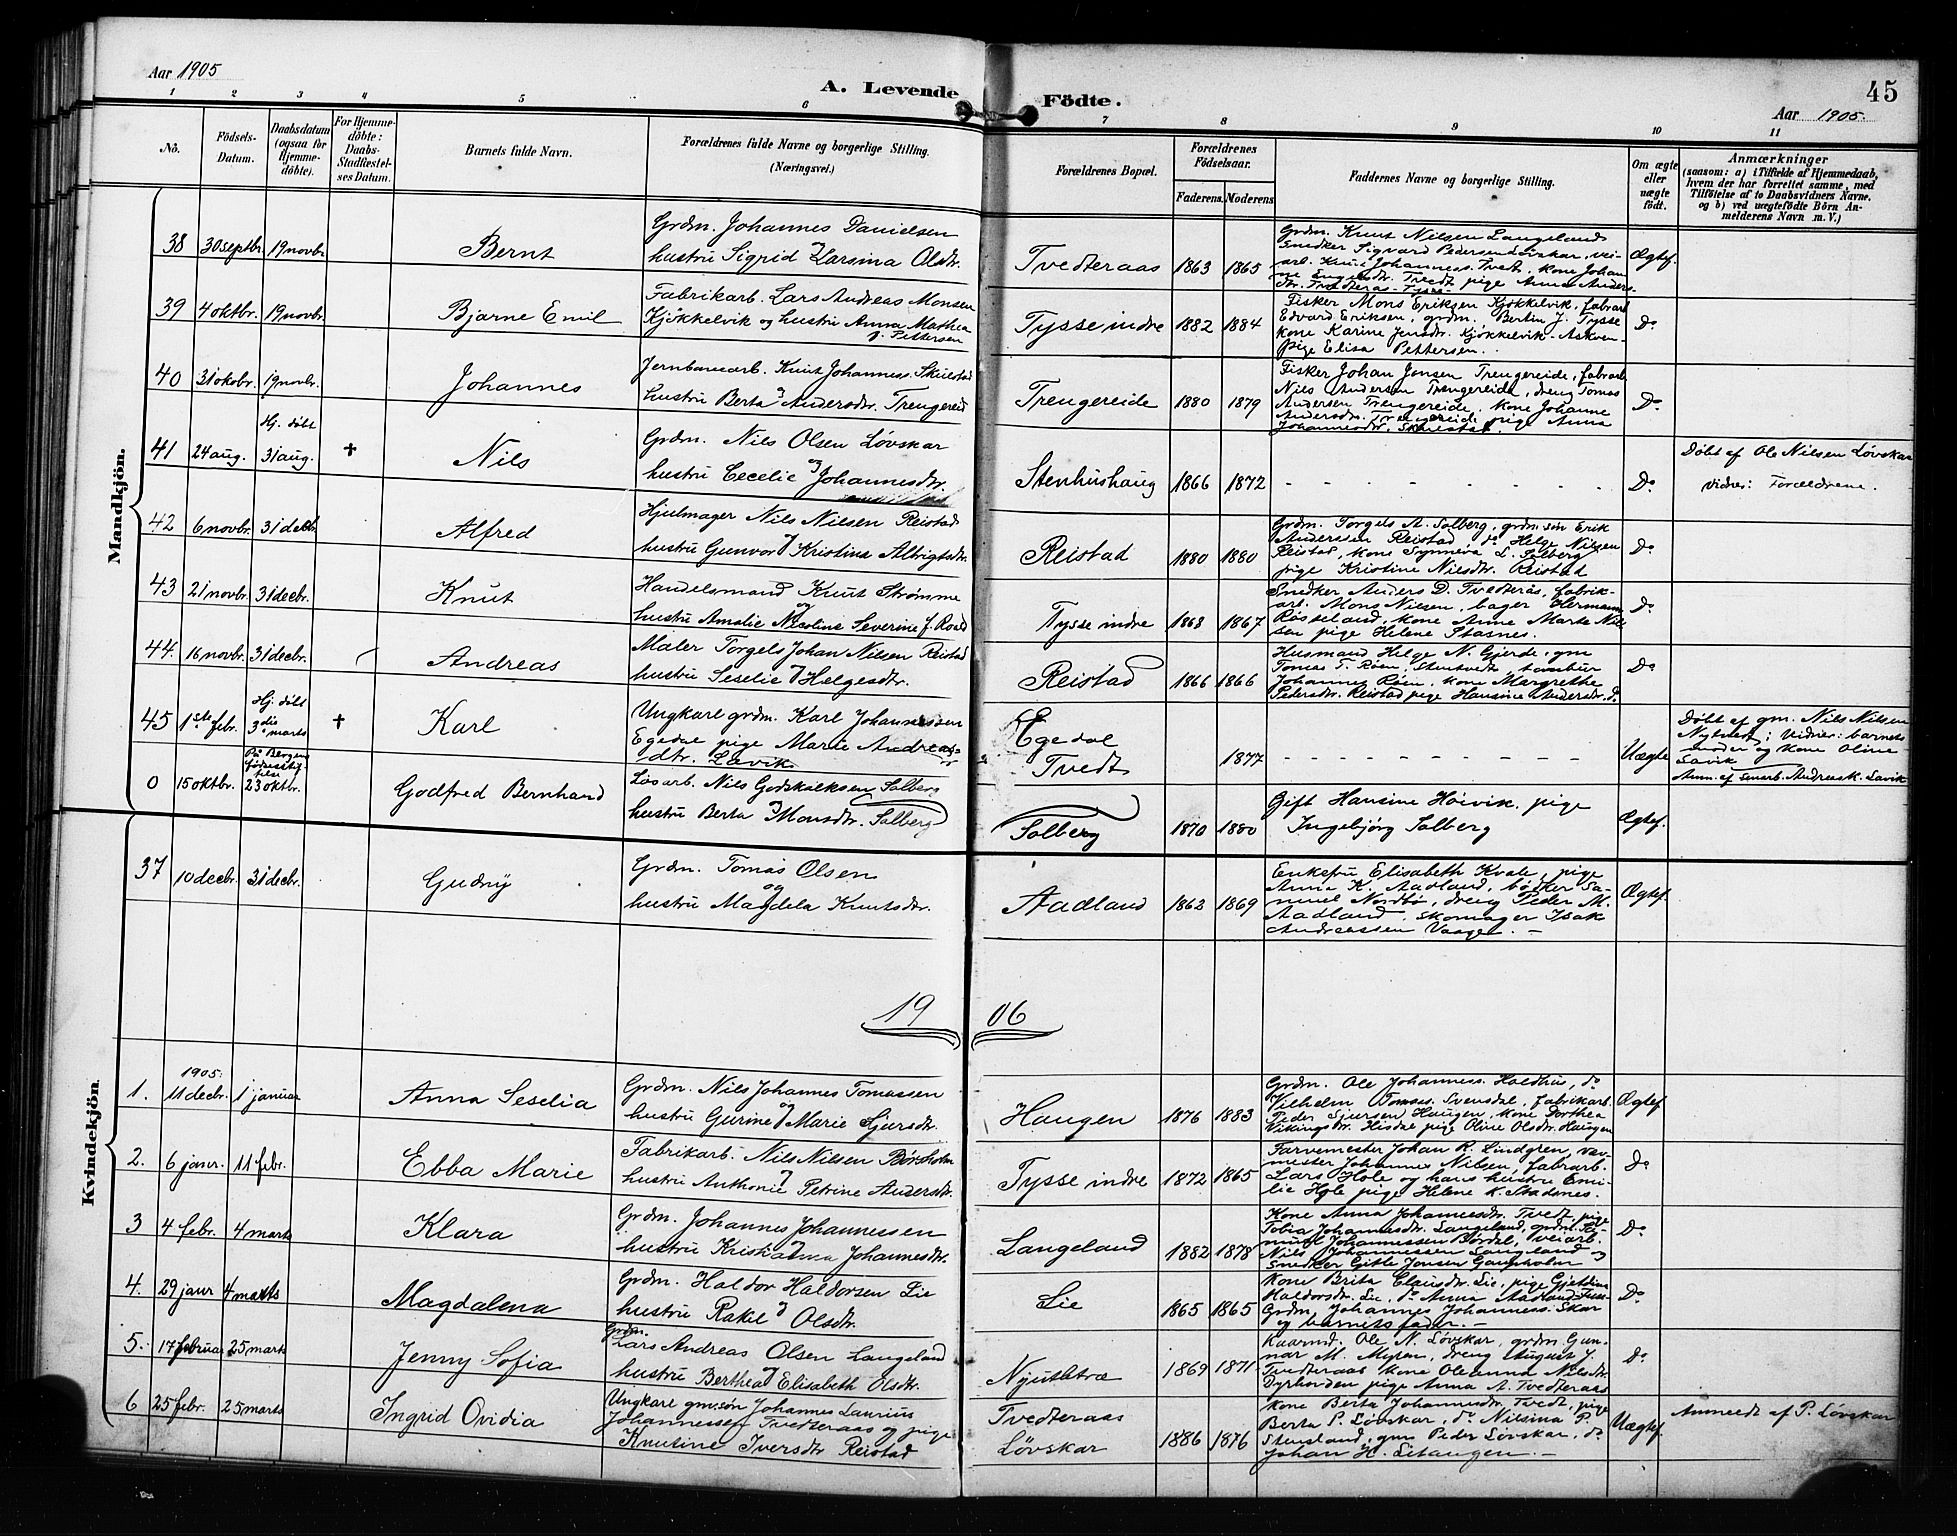 Aar 1905
A. Levende Födte.
45
Aar 1905.
1 2 3 4 5 6 7 8 9 10 11
Nô.
Födsels-Datum.
Daabsdatum (ogsaa for Hjemme-döbte).
For Hjemme-döbte: Daabs-Stadfæstel-ses Datum.
Barnets fulde Navn.
Forældrenes fulde Navne og borgerlige Stilling. (Næringsvei.)
Forældrenes Bopæl.
Forældrenes Födselsaar.
Faderens. Moderens.
Faddernes Navne og borgerlige Stilling.
Om ægte eller uægte födt.
Anmærkninger
(saasom: a) i Tilfælde af Hjemmedaab, hvem der har forrettet samme, med Tilföielse af to Daabsvidners Navne. og b) ved uægtefödte Börn An-melderens Navn m. V.)
Mandkjön.
38 30 septbr. 19 novbr. Bernt
Grdm. Johannes Danielsen
og
hustru Sigrid Larsina Olsdtr.
Tvedteraas 1863 1865
Grdm. Knut Nilsen Langeland
Snedker Sigvard Pedersen Løvskar, vei-
arb. Knut Johanness. Tvedt, kone Johan-
Ægtef.
39 4 oktbr. 19 novbr. Bjarne Emil
Fabrikarb. Lars Andreas Monsen
Kjøkkelvik og hustru Anna Mathea
f. Pettersen
Tysse indre 1882 1884
Fisker Mons Eriksen Kjøkkelvik, fabrarb
Edvard Eriksen, grdm. Bertin J. Tysse
kone Karine Jensdtr. Kjøkkelvik - Askøen -
pige Elisa Pettersen.
Do
40 31 okobr. 19 novbr. Johannes
Jernbanearb. Knut Johanness. Skulstad
og
hustru Berta Andersdtr. Trengereid
Trengereide 1880 1879
Fisker Johan Jensen Trengereide, fabrarb
Nils Andersen Trengereide, dreng Tomas
Andersen Trengereide, kone Johanne
Andersdtr. Trengereide, pige Anna
Johannesdtr. Skulstad.
Do
41 24 aug. Hj. døbt 31 aug. + Nils
Grdm. Nils Olsen Løvskar
og
hustru Cecelie Johannesdtr.
Stenhushaug 1866 1872 - - - - - - - Do
Døbt af Ole Nilsen Løvskar
vidner: Forældrene.
42 6 novbr. 31 decbr. Alfred
Hjulmager Nils Nilsen Reistad
og
hustru Gunvor Kristina Albrigtsdtr.
Reistad 1880 1880
Grdm. Torgels A. Solberg, grdm.søn Erik
Anderssen Reistad, do Helge Nilsen
Reistad, kone Synneva L. Solberg
pige Kristine Nilsdtr. Reistad
Do
43 21 novbr. 31 decbr. Knut
Handelsmand Knut Strømme
og
hustru Amalie Nicoline Severine f. Roald
Tysse indre 1863 1867
Snedker Anders D. Tvedterås, fabrik-
arb. Mons Nilsen, bager Hermann
Røsseland, kone Anne Marte Nil-
sen pige Helene Stasnes.
Do
44. 16 novbr. 31 decbr. Andreas
Maler Torgels Johan Nilsen Reistad
og
hustru Seselie Helgesdtr.
Reistad 1866 1866
Husmand Helge N. Gjerde, gm
Tomas T. Røen, Stentvedt, tambur
Johannes Røen, kone Margrethe
Pedersdtr. Reistad pige Hansine Andersdtr. do
Do
45 1ste febr. Hj. døbt 3die marts + Karl
Ungkarl grdm. Karl Johannessen
Egedal pige Marie Andreas-
dtr. Lavik
Egedal
Tvedt 1877 - - - - - - - Uægte
Døbt af gm. Nils Nilsen
Nytvedt; Vidner: barnets
moder og kone Oline
Lavik
Anm. af smarb. Andreas K. Lavik
0 15 oktbr. På Bergens fødselsstif-telse 23 oktbr. Godfred Bernhard
Løsarb. Nils Godskalksen Solberg
og
hustru Berta Monsdtr. Solberg
Solberg 1870 1880
Gift Hansine Høivik, pige
Ingebjørg Solberg
Ægtef.
Kvindekjön.
37 10 decbr. 31 decbr. Gudny
Grdm. Tomas Olsen
og
hustru Magdela Knutsdtr.
Aadland 1862 1869
Enkefru Elisabeth Kvale, pige
Anna K. Aadland, bøtker Sa-
muel Nordbø, dreng Peder M.
Aadland, skomager Isak
Andreassen Vaage. -
Ægtef.
1906
1. 1905: 11 decbr. 1 januar Anna Seselia
Grdm. Nils Johannes Tomassen
og
hustru Gurine Marie Sjursdtr.
Haugen 1876 1883
Grdm. Ole Johanness. Holdhus, do
Vilhelm Tomass. Svensdal, fabrikarb.
Peder Sjursen Haugen, kone Dorthea
Vikingsdtr. Hisdal pige Oline Olsdtr. Haugen
Ægtef
2. 6 janr. 11 febr. Ebba Marie
Fabrikarb. Nils Nilsen Børsholm
og
hustru Anthonie Petrine Andersdtr.
Tysse indre 1872 1865
Farvemester Johan R. Lindgren, væv-
mester Johannes Nilsen, fabrarb.
Lars Hole og hans hustru Emi-
lie Hole pige Helene K. Stadsnes.
Do
3 4 febr. 4 marts Klara
Grdm. Johannes Johannessen
og
hustru Kristianna Johannesdtr.
Langeland 1882 1878
Kone Anna Johannesdtr. Tvedt, pige
Tobia Johannesdtr. Langeland, grdm. Sa-
muel Johannessen Børdal, veiarb.
Nils Johannessen Langeland og
snedker Gitle Jonsen Gaupholm
Do
4. 29 janr 4 marts Magdalena
Grdm. Haldor Haldorsen Lie
og
hustru Rakel Olsdtr.
Lie 1865 1865
Kone Brita Clausdtr. Lie, pige Gjertina
Haldorsdtr. Lie, do Anna Aadland
Grdm. Johannes Johanness. Skar
og barnets fader. -
Do
5. 17 februar 25 marts Jenny Sofia
Grdm.
Lars Andreas Olsen Langeland
og
hustru Berthea Elisabeth Olsdtr.
Nyutletræ 1869 1871
Kaarmd. Ole N. Løvskar, grdm Gun-
nar M. Myren, dreng August J.
Tvedteraas kone Oleanna Nilsdtr.
Dyrhovden pige Anna A. Tvedteraas
Do
6 25 febr. 25 marts Ingrid Ovidia
Ungkarl gm.søn Johannes Laurius
Johannessen Tvedteraas og pige
Knutine Iversdtr Reistad
Tvedteraas
Løvskar 1886 1876
Kone Berta Johannesdtr. Tvedt, pige
Berta P. Løvskar, do Nilsina P.
Stensland, gm Peder Løvskar, do
Johan H. Litaugen. -
Uægtef.
Anmeldt af P. Løvskar